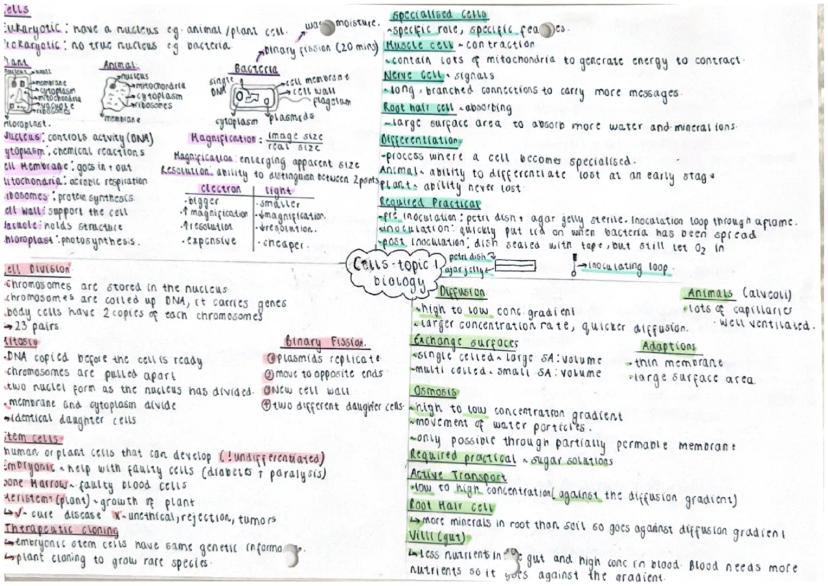 Cells
Eukaryotic: have a nucleus eg animal/plant cell.
Prokaryotic: no true nucleus eg bacteria
moisture.
binary fission (20 mins)
Plant
nucleus
membrane
cytoplasm
mitochondria
ribosomes
chloroplast.
Animal
nucleus
mitochondria
cytoplasm
ribosomes
membrane
Bacteria
single DNA
cell membrane
cell wall
flagellum
cytoplasm
plasmids
Nucleus: controls activity (DNA)
Cytoplasm: chemical reactions
Cell Membrane: goes in + out
Mitochondria: aerobic respiration
Ribosomes: protein synthesis.
Cell wall: support the cell
Vacuole: holds structure
Chloroplast: photosynthesis.
Magnification: image size
real size
Magnification: enlarging apparent size
Resolution: ability to distinguish between 2 points
electron light
bigger smaller
↑ magnification ↓ magnification.
↑ resolution ↓ resolution.
expensive cheaper.
Specialised Cells
specific role, specific
Muscle cell - contraction
contain lots of mitochondria to generate energy to contract.
Nerve Cell - signals
long, branched connections to carry more messages.
Root hair cell - absorbing
large surface area to absorb more water and mineral ions.
Differentiation
process where a cell becomes specialised.
Animal - ability to differentiate lost at an early stage
plant - ability never lost.
Required Practical
pre inoculation: petri dish + agar gelly sterile. Inoculation loop through a flame.
inoculation: quickly put lid on when bacteria has been spread
post inoculation: dish sealed with tape, but still let O2 in
petri dish
agar jelly
inoculating loop.
Cells - topic 1
biology
Cell Division
chromosomes are stored in the nucleus
chromosomes are coiled up DNA, it carries genes
body cells have 2 copies of each chromosomes
→ 23 pairs
Mitosis
DNA copied before the cell is ready
chromosomes are pulled apart
two nuclei form as the nucleus has divided.
membrane and cytoplasm divide
→ identical daughter cells
Binary Fission.
① plasmids replicate
② move to opposite ends
③ New cell wall
④ two different daughter cells.
Stem cells
human or plant cells that can develop (!undifferentiated)
Embryonic - help with faulty cells (diabetes + paralysis)
Bone Marrow - faulty blood cells
Meristem (plant) - growth of plant
✓ - cure disease X - unethical, rejection, tumors
Therapeutic cloning
→ embryonic stem cells have same genetic
plant cloning to grow rare species.
Diffusion
high to low conc gradient
larger concentration rate, quicker diffusion.
Animals (alveoli)
lots of capillaries
well ventilated.
Exchange surfaces
single celled - large SA:volume
multi celled - small SA:volume
Adaptions
thin membrane
large surface area
Osmosis
high to low concentration gradient
movement of water particles.
only possible through partially permable membrane
Required practical - sugar solutions
Active Transport
low to high concentration (against the diffusion gradient)
Root Hair cell
→ more minerals in root than soil so goes against diffusion gradient
Villi (gut)
→ Less nutrient in gut and high conc in blood. Blood needs more
nutrients so it goes against the gradient.